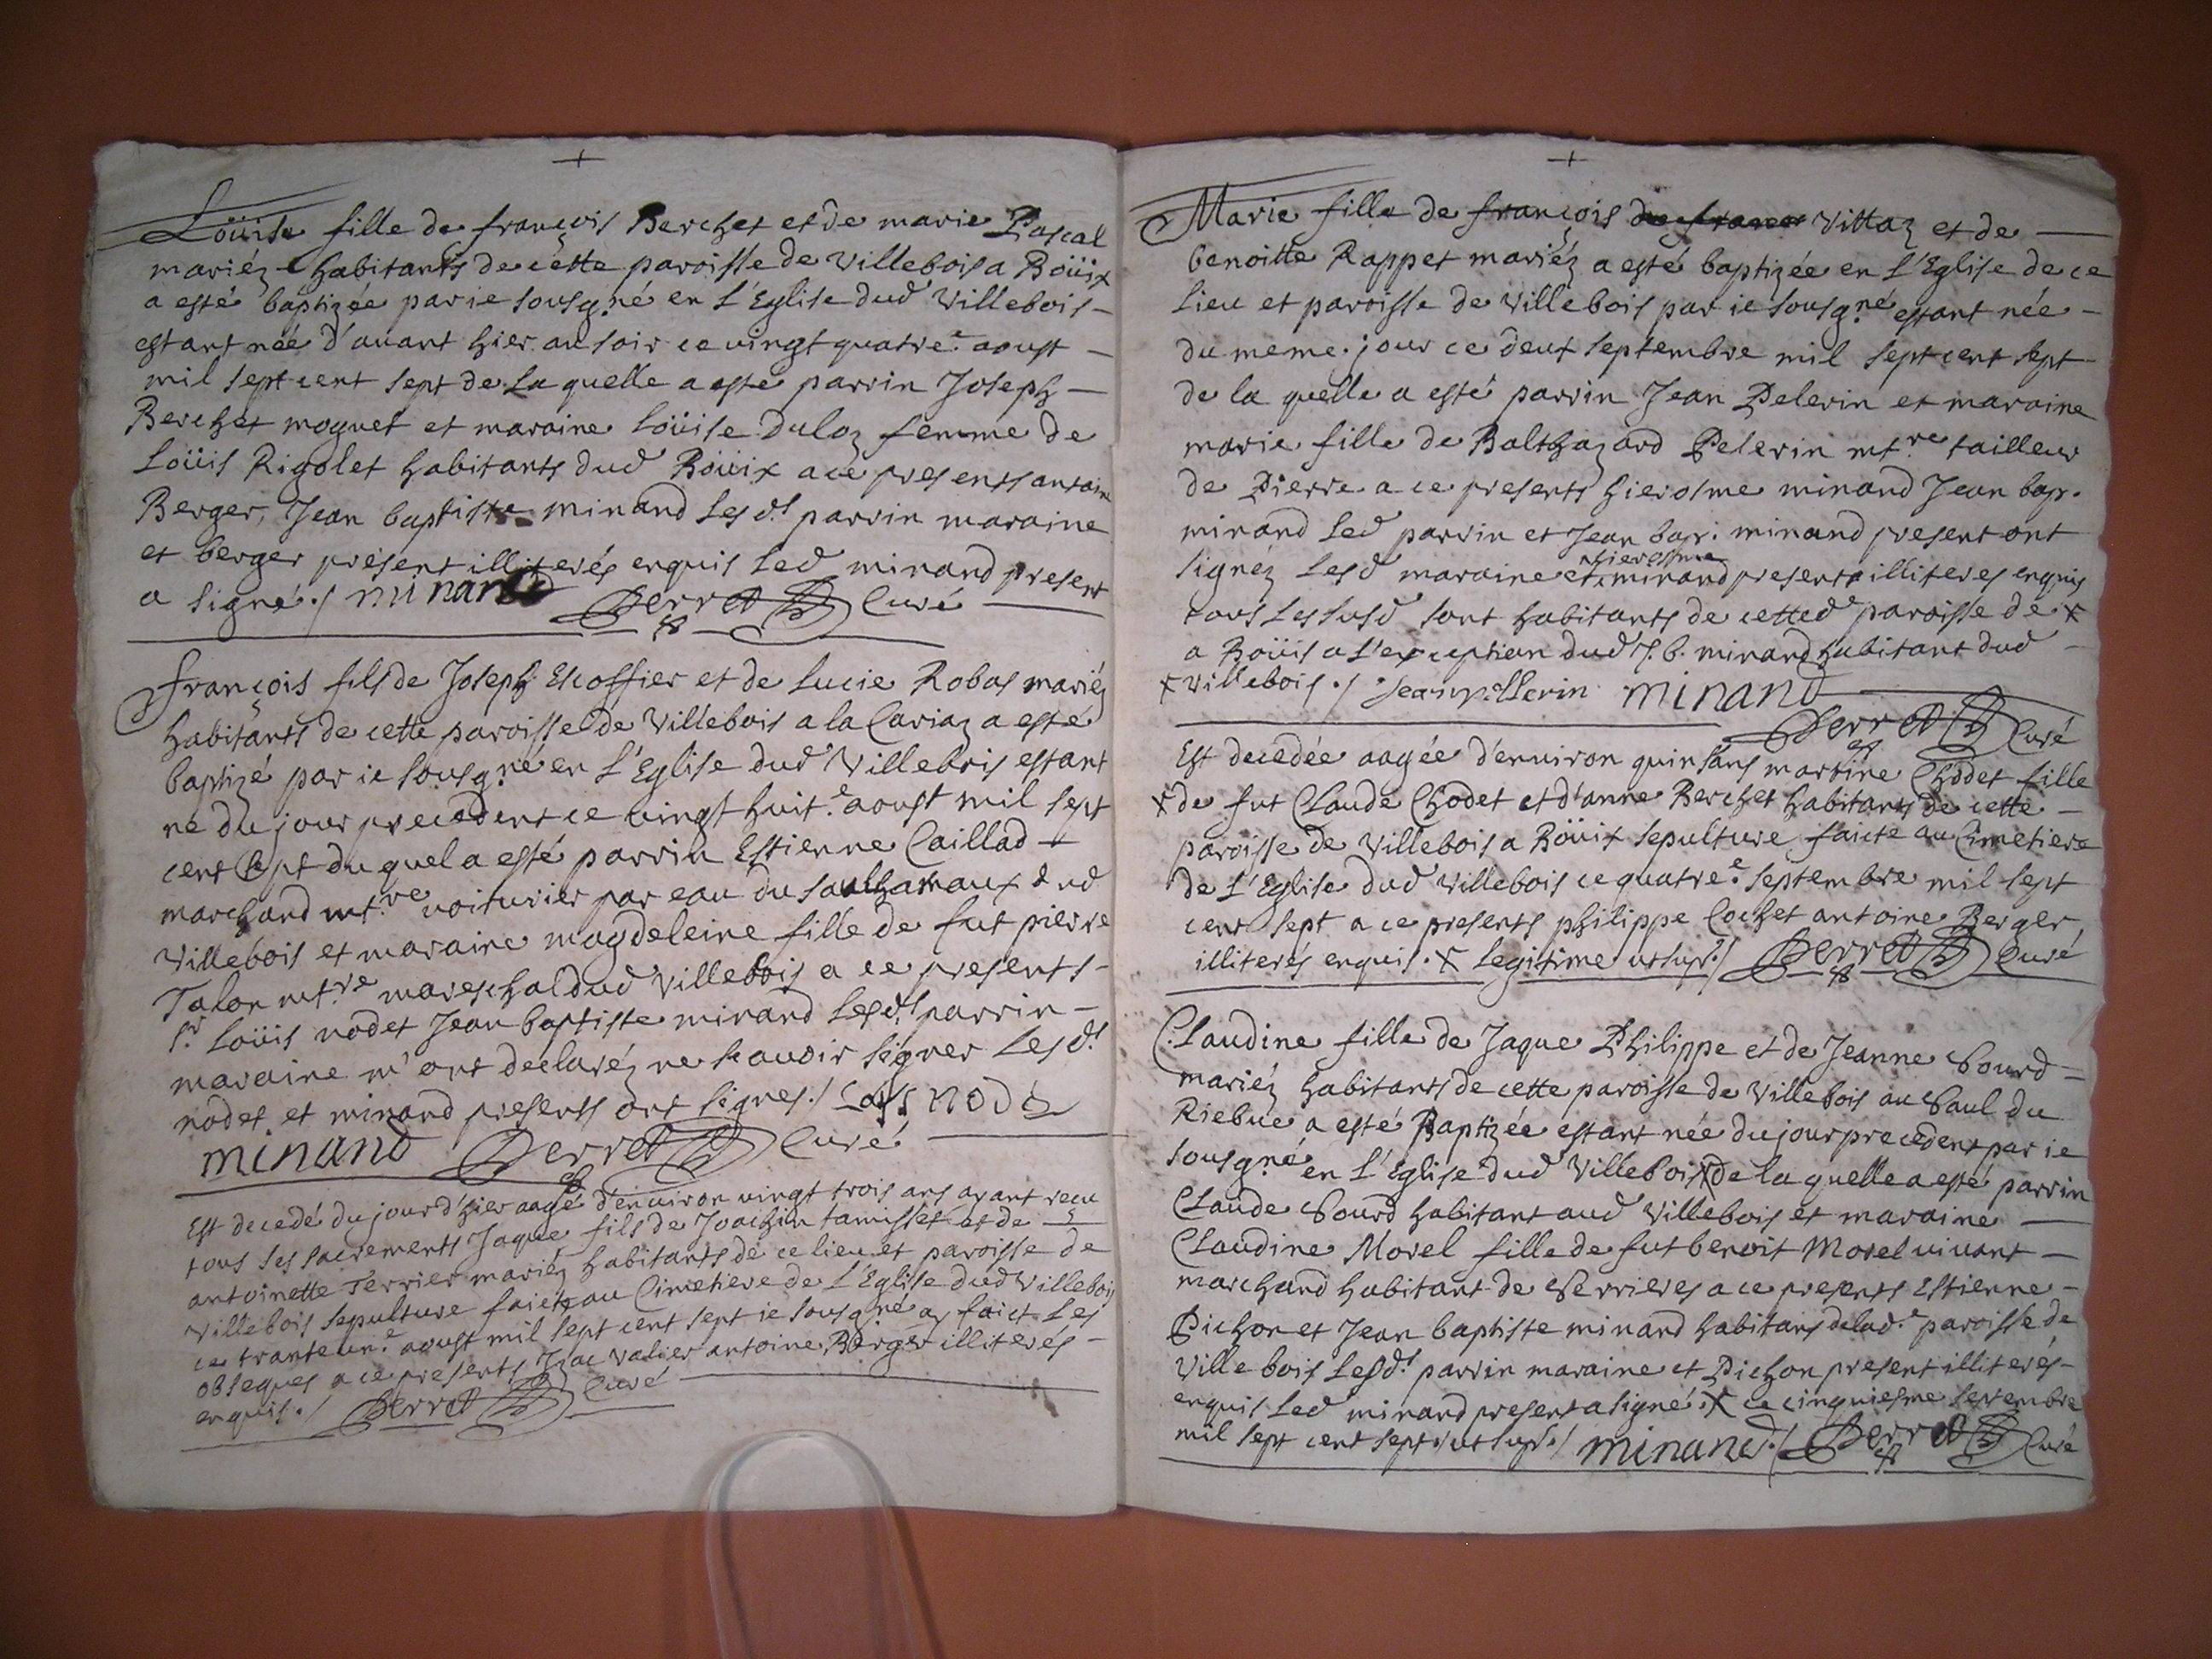 +
Loüise fille de françois Berchet et de marie Pascal
mariéz habitants de cette paroisse de Villebois a Boüix
a esté baptizée par ie sousg.né en l'Eglise dud Villebois -
estant née d'auant hier au soir ce uingt quatre.e aoust -
mil sept cent sept de la quelle a esté parrin Joseph -
Berchet moguet et maraine Loüise duloz femme de
Loüis Rigolet habitants dud Boüix a ce presents antoine
Berger, Jean baptiste minand lesd.s parrin maraine
et berger present illiterés enquis led minand present
a signé ./ minand Perret Curé
françois fils de Joseph Escoffier et de Lucie Robas mariéz
habitants de cette paroisse de Villebois a la Cariaz a esté
baptizé par ie sousg.né en l'Eglise dud Villebois estant
né du jour precedent ce uingt huit.e aoust mil sept
cent sept du quel a esté parrin Estienne Caillad -
marchand mt.re uoiturier par eau du saulthamaux dud
Villebois et maraine magdeleine fille de fut pierre
Talon mt.re mareschal dud Villebois a ce presents -
s.r Loüis nodet Jean baptiste minand lesd.s parrin -
maraine m'ont declaréz ne scauoir signer lesd.s
nodet et minand presents ont signes ./ Loüis nodet
minand Perret Curé
Est decedé du jour d'hier aagé d'enuiron uingt trois ans ayant recu
tous ses sacrements Jaque fils de Joachin tamisset et de -
antoinette Terrier mariéz habitants de ce lieu et paroisse de
Villebois sepulture faicte au Cimetiere de l'Eglise dud Villebois
ce tranteun.e aoust mil sept cent sept ie sousg.né ay faict les
obseques a ce presents Izac Valier antoine Berger illiterés -
enquis ./ Perret Curé
+
Marie fille de françois Villaz et de -
benoitte Rappet mariéz a esté baptizée en l'Eglise de ce
lieu et paroisse de Villebois par ie sousg.né estant née -
du meme jour ce deux septembre mil sept cent sept
de la quelle a esté parrin Jean Pelerin et maraine
marie fille de Balthazard Pelerin mt.re tailleur
de Pierre a ce presents hierosme minand Jean bap.
minand led parrin et Jean bap. minand present ont
signéz lesd maraine et hierosme minand present illiteres enquis
tous les susd sont habitants de cetted.e paroisse de x
a Boüis a l'exception dud J. b. minand habitant dud -
x Villebois ./ Jean pellerin minand
Perret Curé
Est decedée aagée d'enuiron quinsans martine Chodet fille
x de fut Claude Chodet et d'anne Berchet habitants de cette -
paroisse de Villebois a Boüix sepulture faicte au Cimetiere
de l'Eglise dud Villebois ce quatre.e septembre mil sept
cent sept a ce presents philippe Cochet antoine Berger
illiterés enquis. x legitime ut sup.ra ./ Perret Curé
Claudine fille de Jaque Philippe et de Jeanne Bourd -
mariéz habitants de cette paroisse de Villebois au Saul du
Riebue a esté Baptizée estant née du jour precedent par ie
sousg.né en l'Eglise dud Villebois x de la quelle a esté parrin
Claude Bourd habitant aud Villebois et maraine -
Claudine Morel fille de fut benoit Morel uiuant -
marchand habitant de Serrieres a ce presents Estienne -
Pichon et Jean baptiste minand habitans delad.e paroisse de
Ville bois lesd.s parrin maraine et Pichon present illiterés -
enquis led minand present a signé. x ce cinquiesme septembre
mil sept cent sept ut sup.ra ./ minand ./ Perret Curé